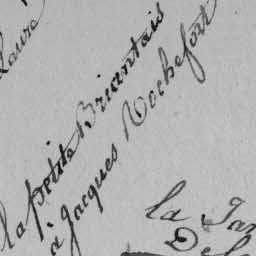 Laure
la petite Briantais
à Jacques Rochefort
la
De